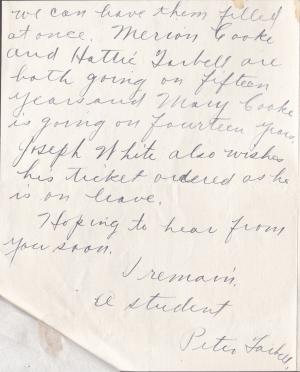 we can have them filled
at once. Merion Cooke
and Hattie Tarbell are
both going on fifteen
years and Mary Cooke
is going on fourteen years.
Joseph White also wishes
his ticket ordered as he
is on leave.
Hoping to hear from
you soon.
I remain.
A student
Peter Tarbell.